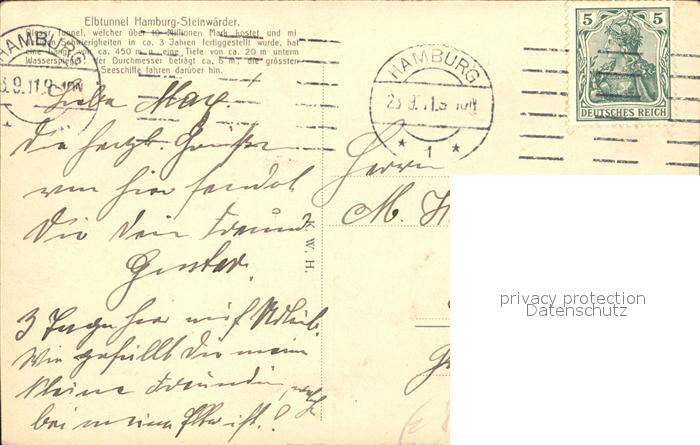 Elbtunnel Hamburg-Steinwärder.
Tunnel, welcher über 10 Millionen Mark kostet und mi
Schwierigkeiten in ca. 3 Jahren fertiggestellt wurde, hat
eine von ca. 450 m u. eine Tiefe von ca. 20 m unterm
Wasserspiegel. Der Durchmesser beträgt ca. 6 m, die grössten
Seeschiffe fahren darüber hin.
HAMBURG
23.9.11.9-10N
HAMBURG
23.9.11.9-10N
* 1 *
5 5
DEUTSCHES REICH
Liebe Max.
Die herzl. Grüße
von hier sendet
Dir Dein Freund
Gustav.
3 Tage hier auf
Wie gefällt Dir meine
kleine Freundin,
bei ist?
K. W. H.
Herrn
M.
privacy protection
Datenschutz